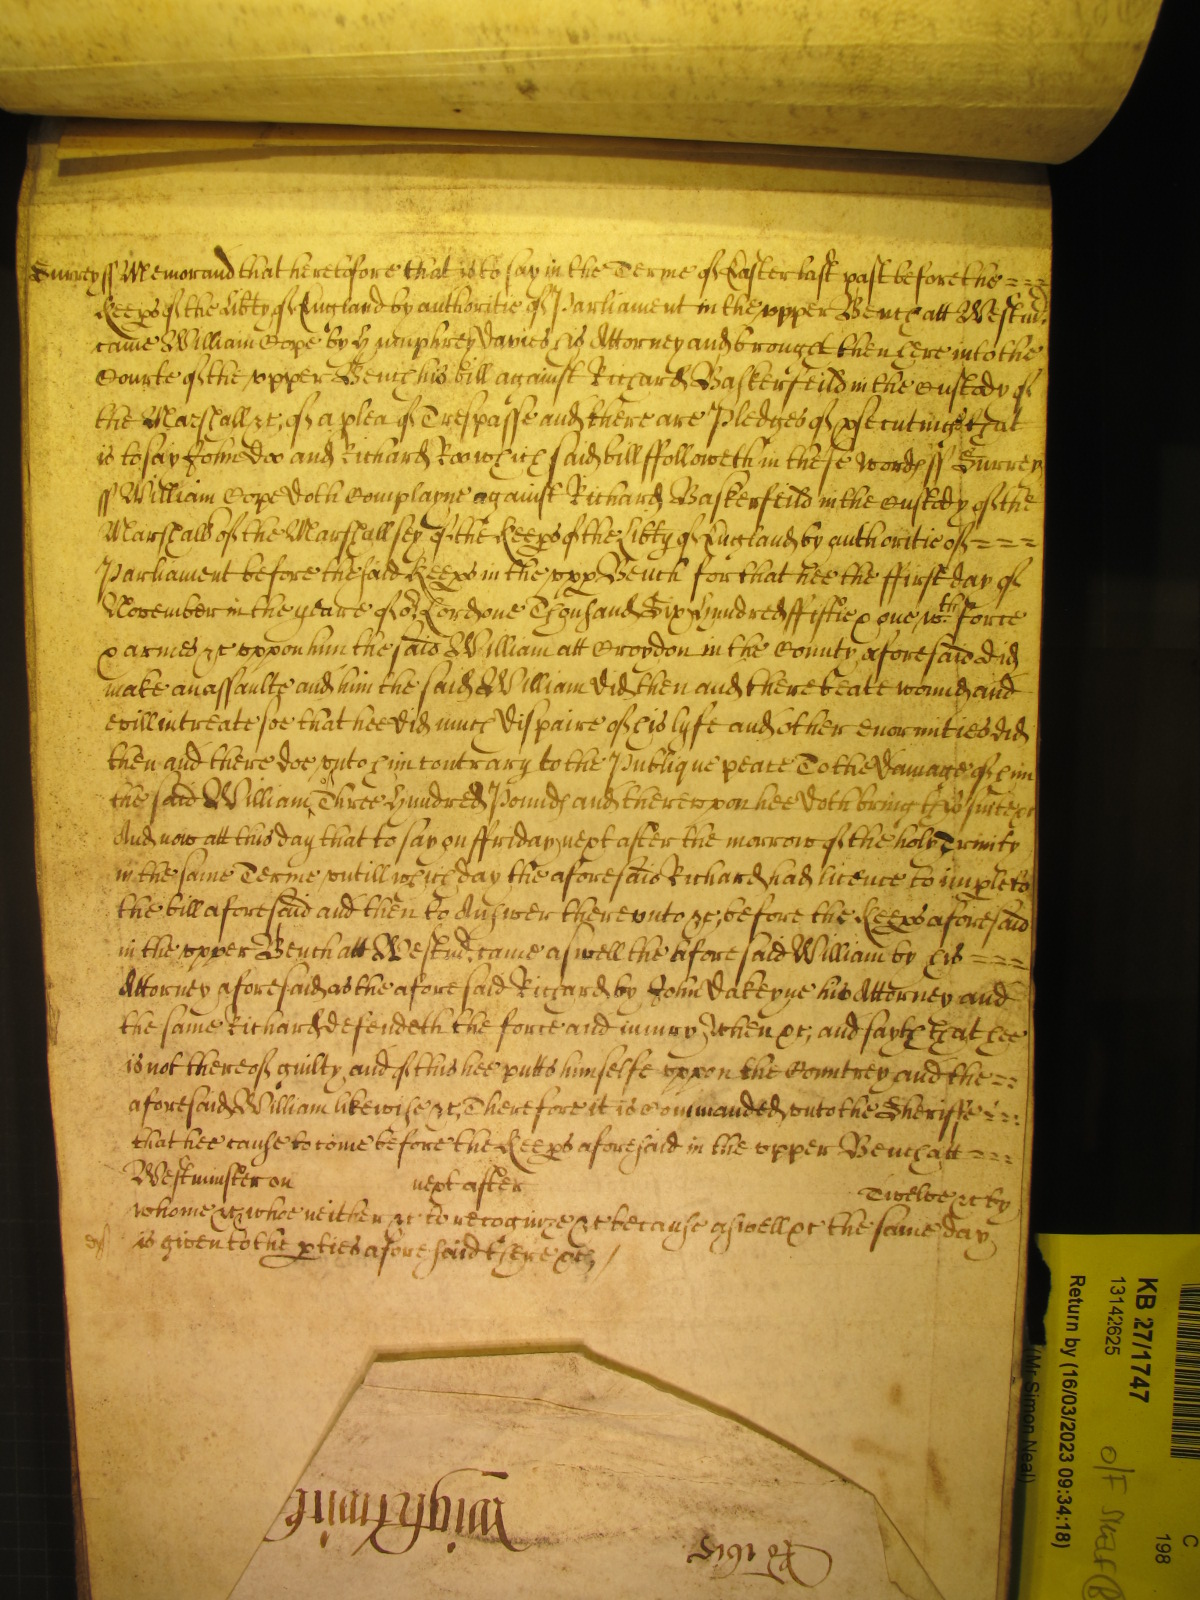 Surrey ss Memorand that heretofore that is to say in the Terme of Easter last past before the = = =
Keeps of the Libty of England by authoritie of Parliament in the upper Bench att Westmr
came William Cope by Humphrey Davies his Attorney and brought then here into the
Courte of the upper Bench his bill against Richard Baskerfeild in the Custody of
the Marshall &c, of a plea of Trespasse and there are Pledges of psecuting that
is to say John Doo and Richard Roo which said bill ffolloweth in these words ss Surrey
ss William Cope doth Complayne against Richard Baskerfeild in the Custody of the
Marshall of the Marshallsey of the Keeps of the Libty of England by authoritie of = = =
Parliament before the said Keeps in the vpp Bench for that hee the ffirst day of
November in the yeare of or Lord one Thousand Six Hundred ffiftie & one wth force
& armes &c uppon him the said William att Croydon in the County aforesaid did
make an assaulte and him the said William did then and there beate wound and
evill intreate soe that hee did much dispaire of his lyfe and other enormities did
then and there doe unto him contrary to the Publique peace To the damage of him
the said William of Three Hundred Pounds and thereupon hee doth bring this suite &c
And now att this day that to say on ffriday next after the morrow of the holy Trinity
in the same Terme untill which day the aforesaid Richard had licence to imple to
the bill aforesaid and then to Answer thereunto &c, before the Keeps aforesaid
in the upper Bench att Westmr came aswell the aforesaid William by his = = =
Attorney aforesaid as the aforesaid Richard by John Dakeyne his Attorney and
the same Richard defendeth the force and iniury when &c, and sayth that hee
is not thereof guilty and of this hee putts himselfe uppon the Countrey and the = =
aforesaid William likewise &c, Therefore it is Commanded unto the Sheriffe = = =
that hee cause to come before the Keeps aforesaid in the upper Bench att = = =
Westminster on next after Twelve &c by
whome &c, whoe neither &c to recognize &c because aswell &c the same day
is given to the pties aforesaid there &c,
Wightwick
KB 27/1747
13142625
Return by (16/03/2023 09:34:18)
(Mr Simon Neal)
C
198